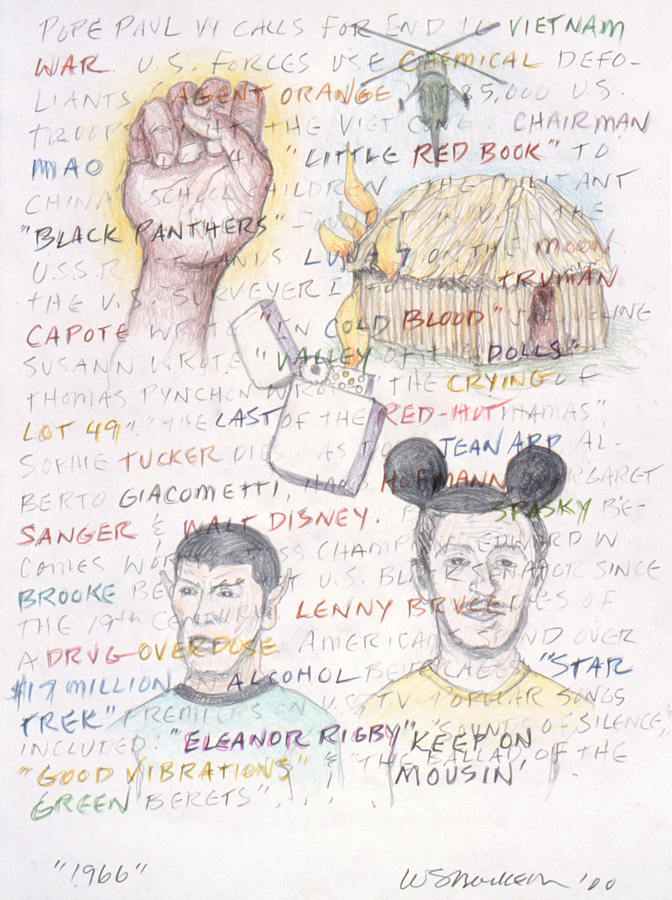 POPE PAUL VI CALLS FOR END TO VIETNAM
WAR. U.S. FORCES USE CHEMICAL DEFO-
LIANTS "AGENT ORANGE 385,000 U.S.
TROOPS THE VIET CONG. CHAIRMAN
MAO "LITTLE RED BOOK" TO
CHINA SCHOOL CHILDREN. THE MILITANT
"BLACK PANTHERS" THE
U.S.S.R. LANDS LUNA 9 ON THE MOON
THE U.S. "SURVEYER I TRUMAN
CAPOTE WROTE "IN COLD BLOOD" JACQUELINE
SUSANN WROTE "VALLEY OF THE DOLLS"
THOMAS PYNCHON WROTE "THE CRYING OF
LOT 49". "THE LAST OF THE RED-HOT MAMAS",
SOPHIE TUCKER DIES. AS DO JEAN ARP AL-
BERTO GIACOMETTI, HANS HOFMANN MARGARET
SANGER & WALT DISNEY. SPASKY BE-
COMES WORLD CHESS CHAMPION. EDWARD W
BROOKE BE U.S. BLACK SENATOR SINCE
THE 19TH CENTURY. LENNY BRUCE DIES OF
A DRUG OVERDOSE AMERICANS SPEND OVER
$17 MILLION ALCOHOL BEVERAGES. "STAR
TREK" PREMIERS ON U.S. T.V. POPULAR SONGS
INCLUDED: "ELEANOR RIGBY", "SOUNDS OF SILENCE",
"GOOD VIBRATIONS" & "THE BALLAD OF THE
GREEN BERETS" . . . .
KEEP ON
MOUSIN'
"1966"
'00